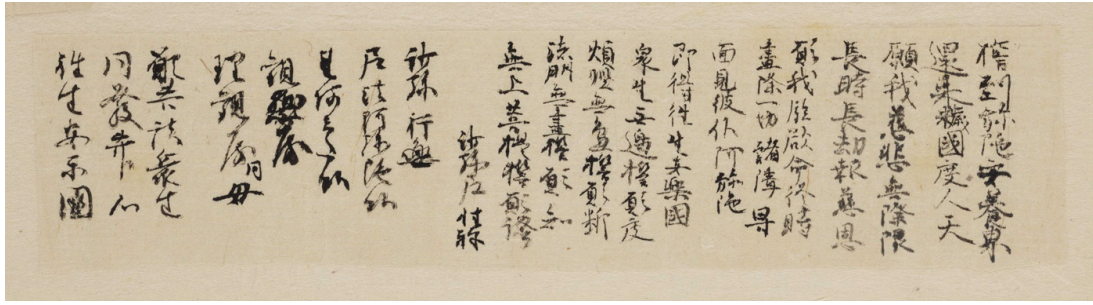 誓到弥陀安養界
還来穢國度人天
願我慈悲無際限
長時長劫報慈恩
願我臨欲命終時
盡除一切諸障㝵
面見彼仏阿弥陀
即得往生安樂國
衆生无邊誓願度
煩悩無邊誓願断
法門無盡誓願知
無上菩提誓願證
沙弥尼
沙弥行
尼法阿弥陀仏
房
理観房母
願共諸衆生
同發菩提心
往生安樂國